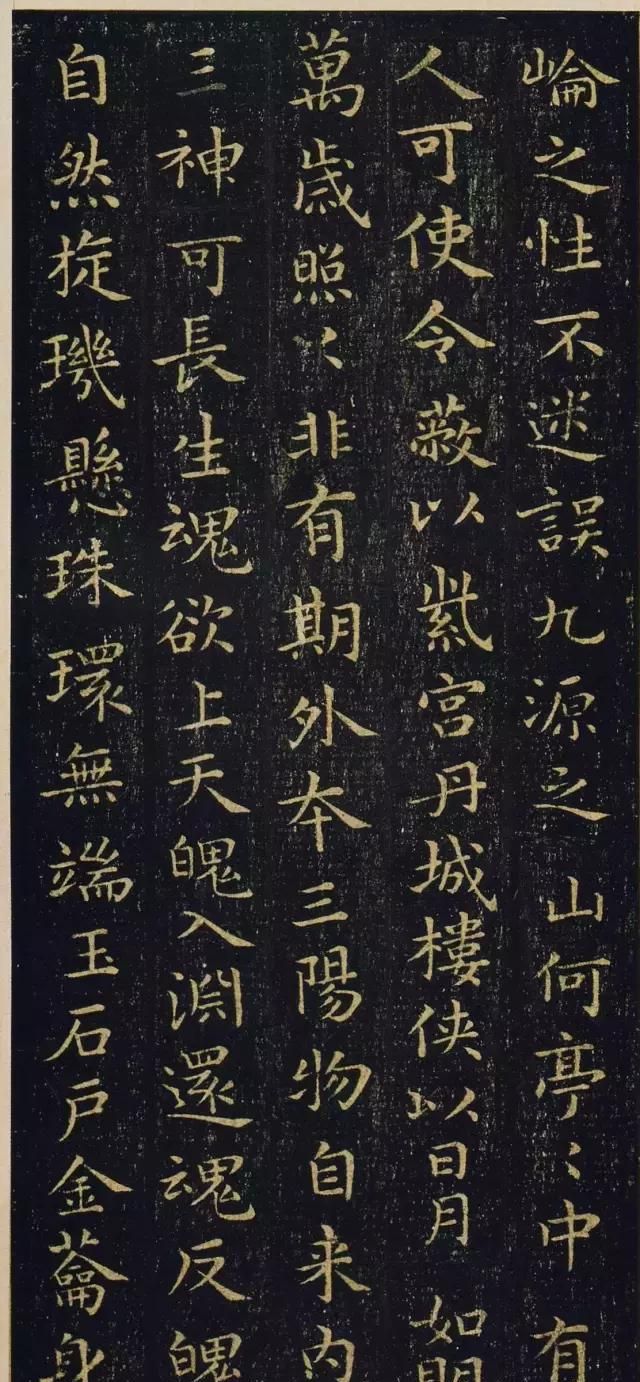 崘之性不迷誤九源之山何亭〻中有
人可使令蔽以紫宮丹城樓俠以日月如明
萬歲照〻非有期外本三陽物自来内
三神可長生魂欲上天魄入淵還魂反魄
自然旋璣懸珠環無端玉石戶金蘥身